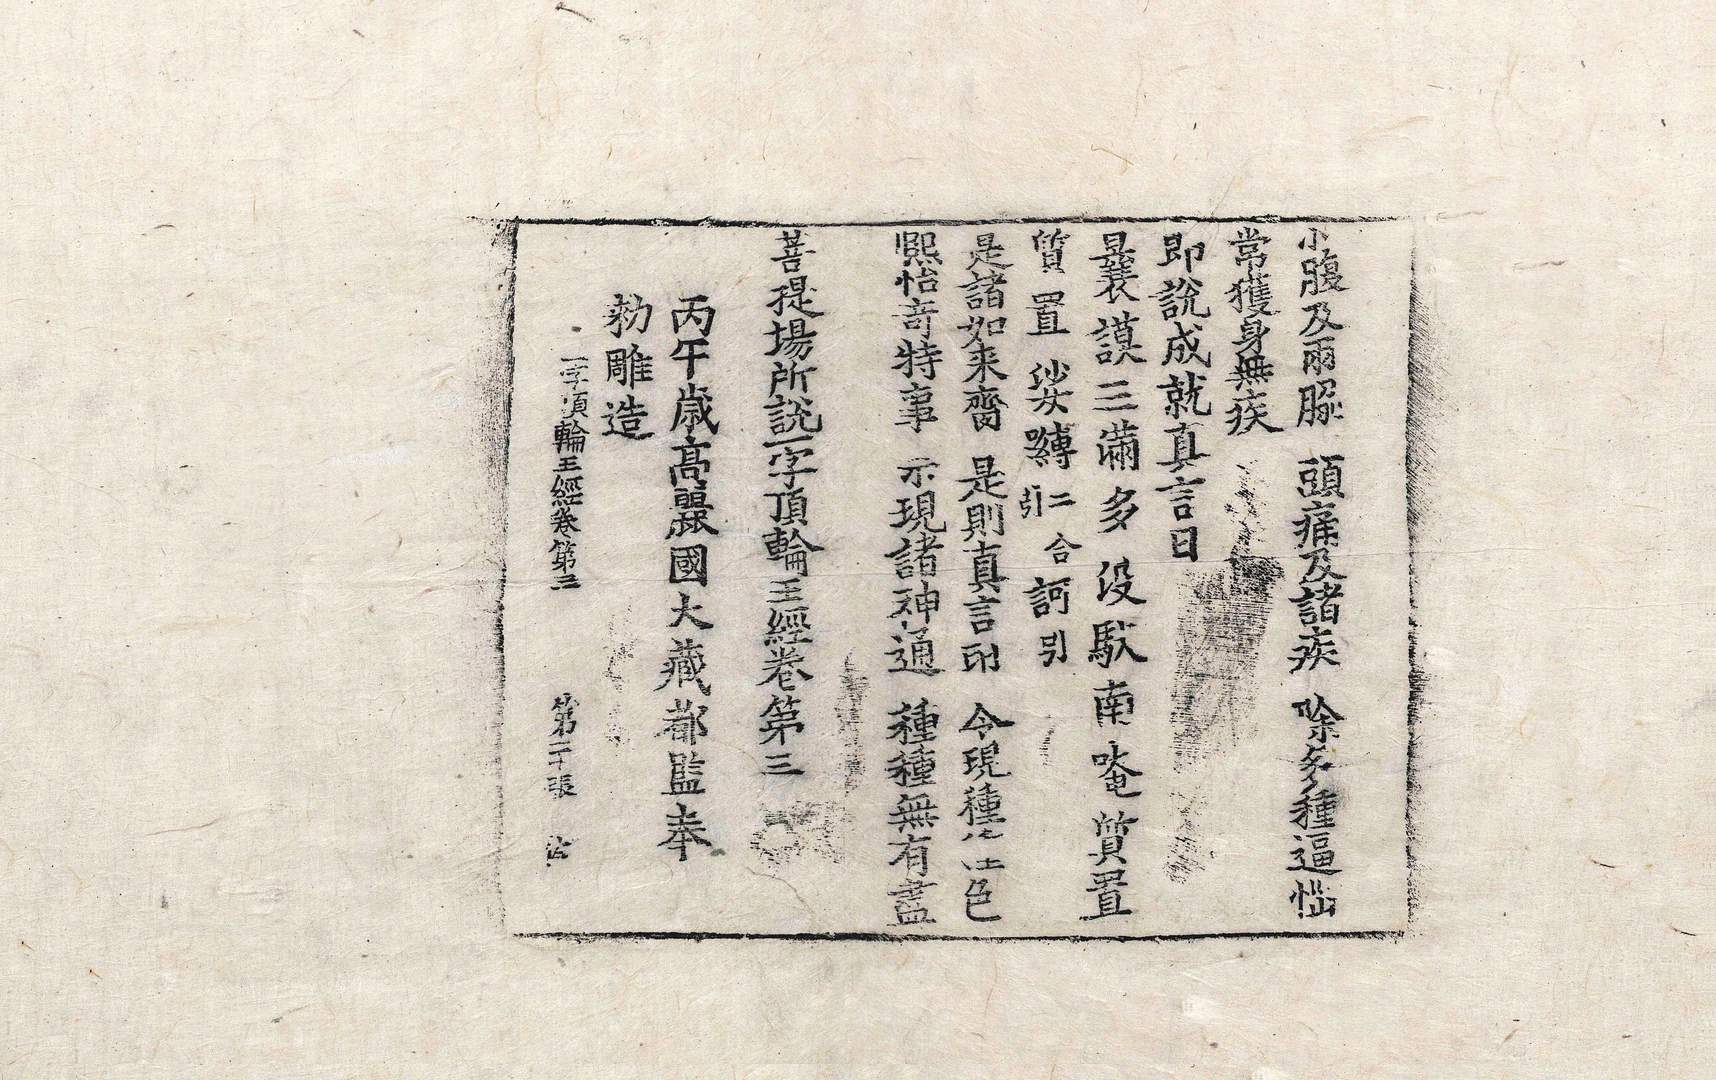 小腹及兩脇 頭痛及諸疾 除多種逼惱
常獲身無疾
即說成就真言曰
曩謨三滿多沒馱南唵質置
質置娑嚩二合引訶引
是諸如来齎 是則真言印 令現種色
熙怡奇特事 示現諸神通 種種無有盡
菩提場所說一字頂輪王經卷第三
丙午歲高麗國大藏都監奉
勑雕造
一字頂輪王經卷第三 第二十張